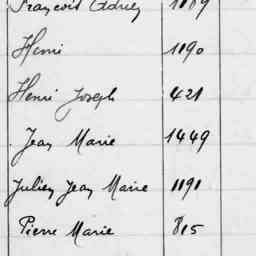 François Adrien 1189
Henri 1190
Henri Joseph 421
Jean Marie 1449
Julien Jean Marie 1191
Pierre Marie 815